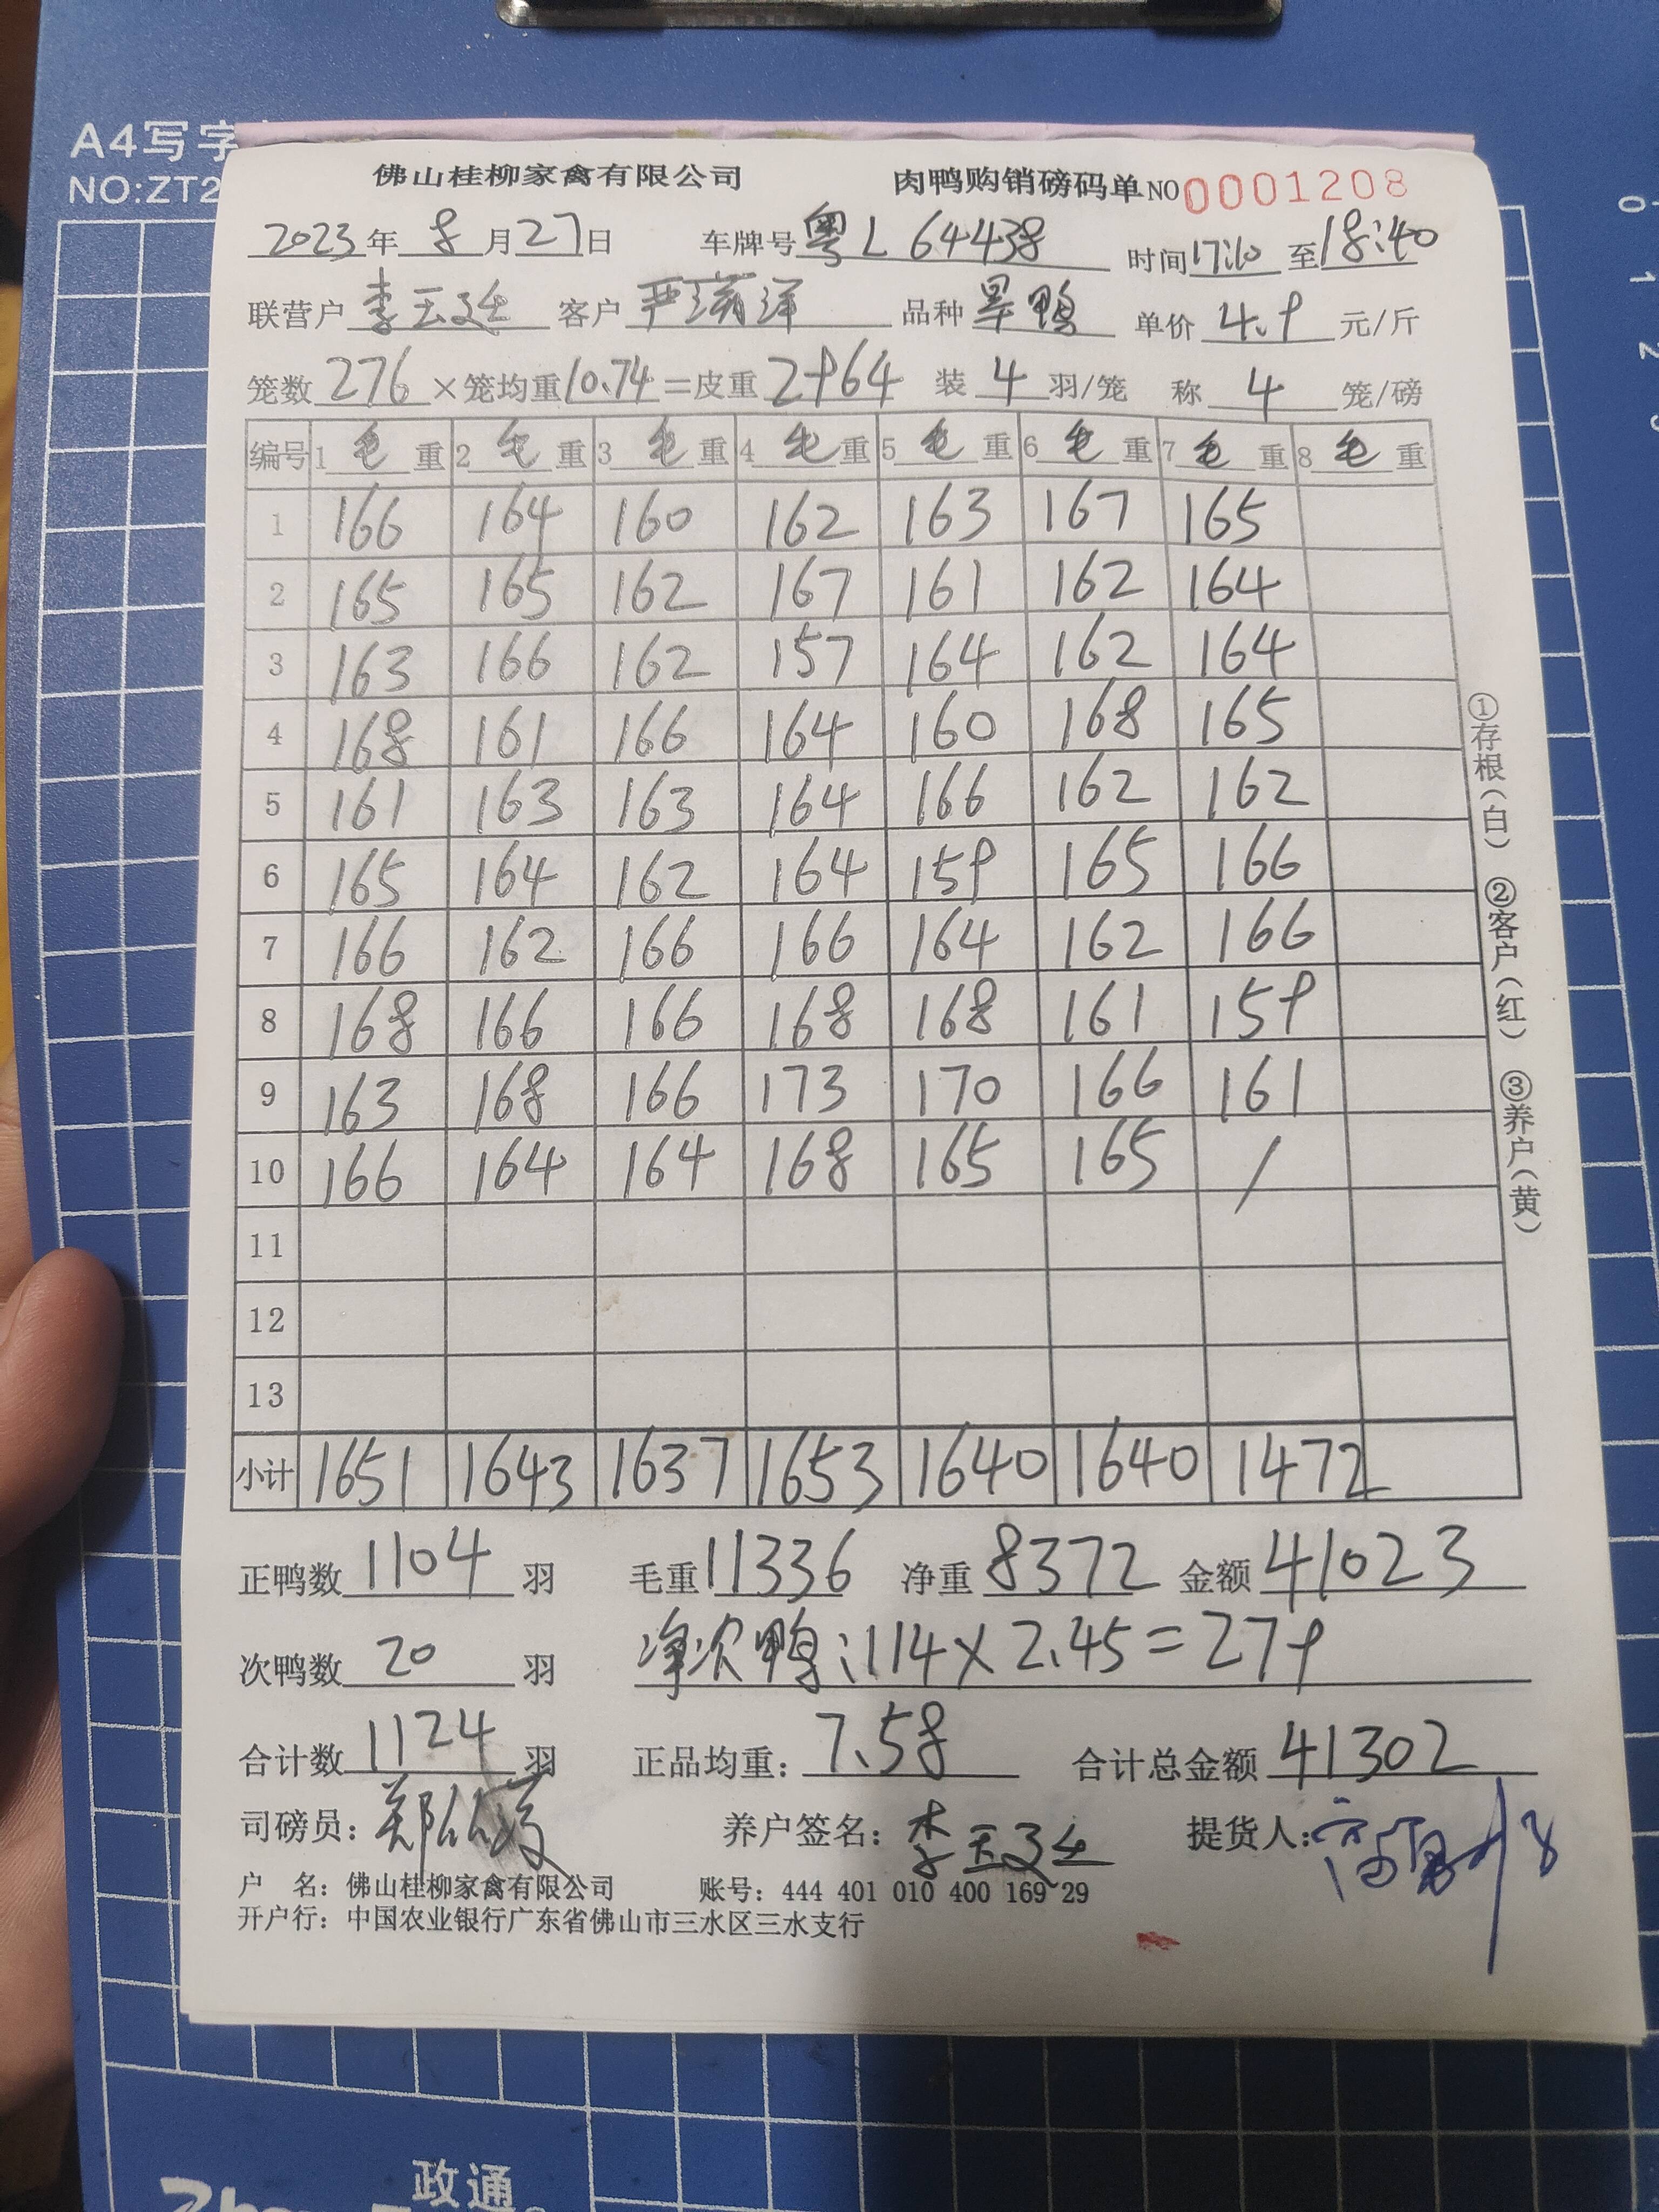 A4写字
NO:ZT2
佛山桂柳家禽有限公司 肉鸭购销磅码单 NO 0001208
2023年8月27日 车牌号 粤L64438 时间 17:10 至 18:40
联营户 李玉廷 客户 严满洋 品种 旱鸭 单价 4.9 元/斤
笼数 276 ×笼均重 10.74 =皮重 2964 装 4 羽/笼 称 4 笼/磅
编号 1 毛 重 2 毛 重 3 毛 重 4 毛 重 5 毛 重 6 毛 重 7 毛 重 8 毛 重
1 166 164 160 162 163 167 165
2 165 165 162 167 161 162 164
3 163 166 162 157 164 162 164
4 168 161 166 164 160 168 165
5 161 163 163 164 166 162 162
6 165 164 162 164 159 165 166
7 166 162 166 166 164 162 166
8 168 166 166 168 168 161 159
9 163 168 166 173 170 166 161
10 166 164 164 168 165 165 /
11
12
13
小计 1651 1643 1637 1653 1640 1640 1472
①存根(白) ②客户(红) ③养户(黄)
正鸭数 1104 羽 毛重 11336 净重 8372 金额 41023
次鸭数 20 羽 净次鸭:114×2.45=279
合计数 1124 羽 正品均重: 7.58 合计总金额 41302
司磅员: 养户签名: 李玉廷 提货人:
户 名: 佛山桂柳家禽有限公司 账号: 444 401 010 400 169 29
开户行: 中国农业银行广东省佛山市三水区三水支行
政通
0
1
2
3